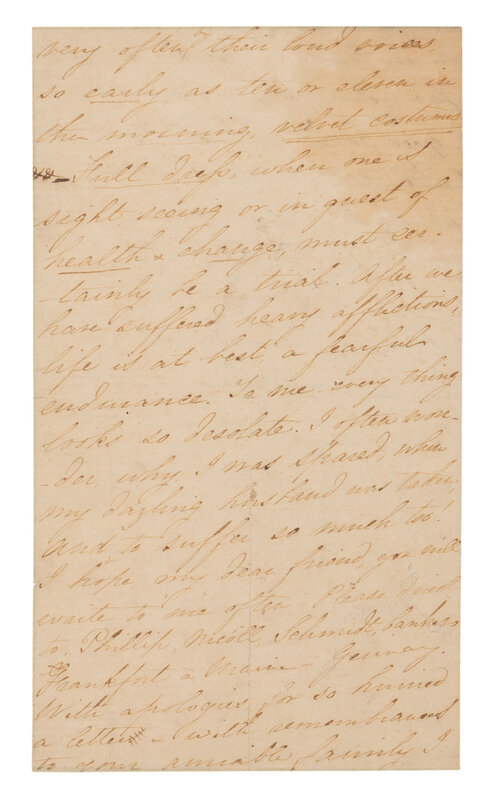 very often, their loud voices,
so early as ten or eleven in
the morning, velvet costumes
Full dress, when one is
sight seeing or in quest of
health & change, must cer-
-tainly be a trial. After we
have suffered heavy afflictions,
life is at best, a fearful
endurance. To me every thing
looks so desolate. I often won-
-der, why I was spared, when
my darling husband was taken,
and to suffer so much too!
I hope, my dear friend, you will
write to me often – Please direct
to, Phillip, Nicoll, Schmidt, bankers
Frankfort a Maine –
With apologies for so hurried
a letter & with remembrances
to your amiable family I